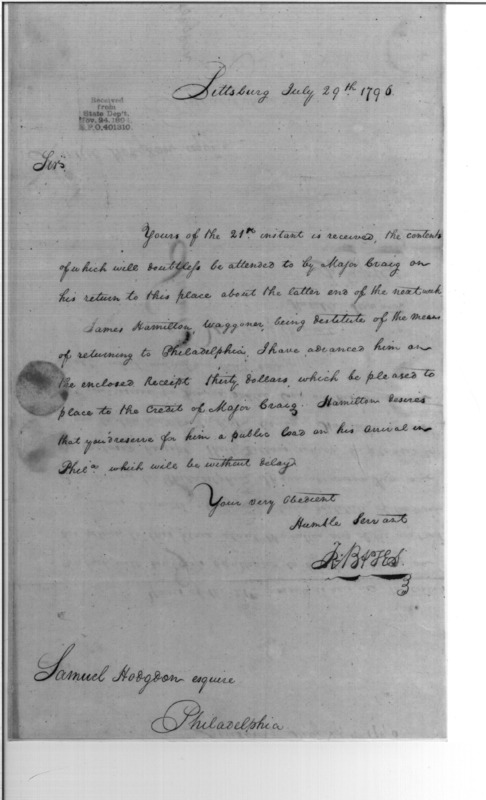 Pittsburg July 29th 1796
Received
from
State Dep't.
Nov. 24, 190
401310
Sir,
Yours of the 21st instant is received, the contents
of which will doubtless be attended to by Major Craig on
his return to this place about the latter end of the next week
James Hamilton, waggoner, being destitute of the means
of returning to Philadelphia, I have advanced him on
the enclosed Receipt thirty dollars, which be pleased to
place to the Credit of Major Craig. Hamilton desires
that you'd reserve for him a public load on his arival in
Phila which will be without delay
Your very Obedient
Humble Servant
Samuel Hodgdon esquire
Philadelphia